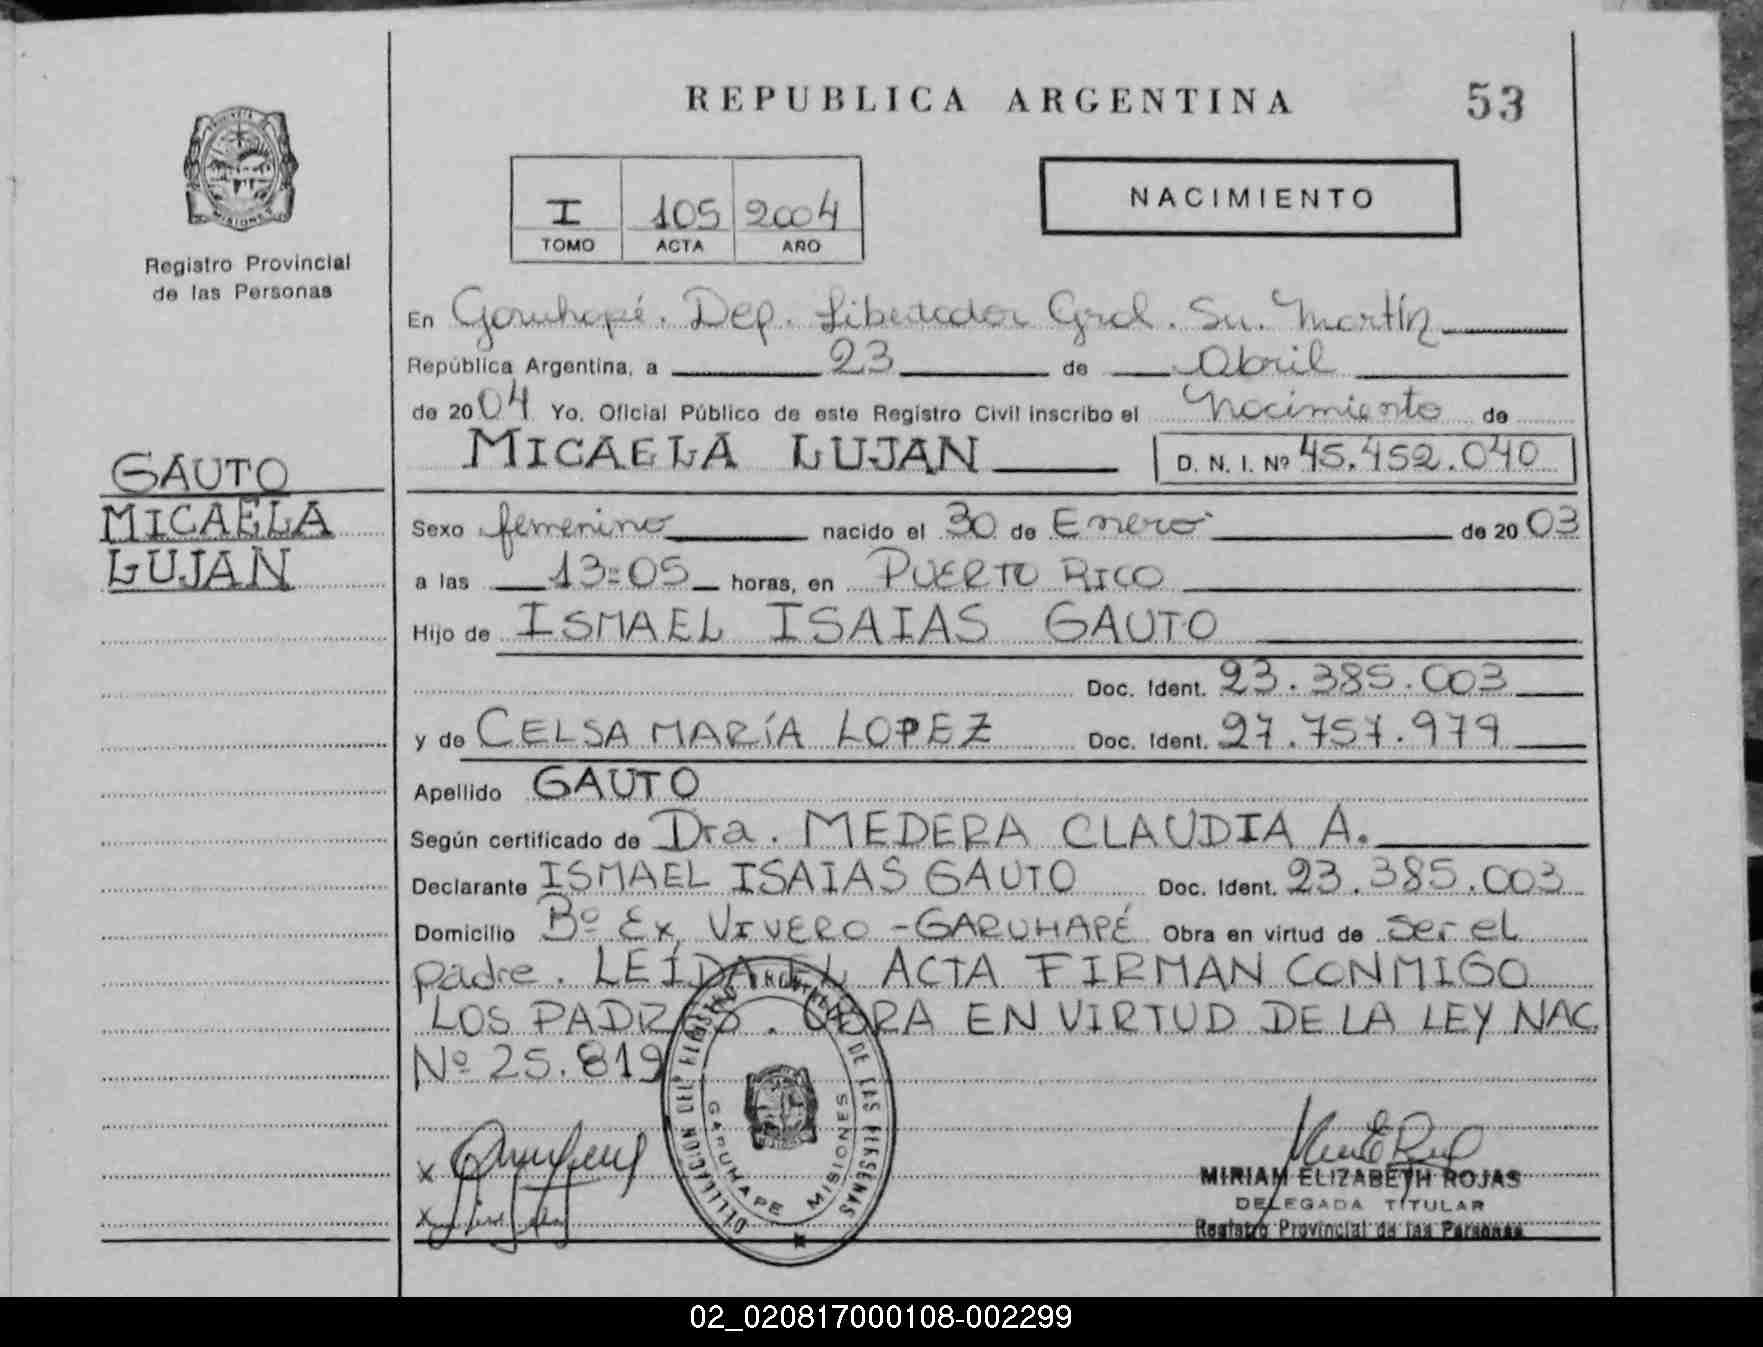 REPUBLICA ARGENTINA
53
Registro Provincial
de las Personas
I 105 2004
TOMO ACTA AÑO
NACIMIENTO
En Garuhapé. Dep. Libertador Gral. Sn. Martín
República Argentina, a 23 de Abril
de 2004 Yo, Oficial Público de este Registro Civil inscribo el Nacimiento de
MICAELA LUJAN D. N. I. Nº 45.452.040
GAUTO
MICAELA
LUJAN
Sexo femenino nacido el 30 de Enero de 2003
a las 13:05 horas, en PUERTO RICO
Hijo de ISMAEL ISAIAS GAUTO
Doc. Ident. 23.385.003
y de CELSA MARÍA LOPEZ Doc. Ident. 27.757.979
Apellido GAUTO
Según certificado de Dra. MEDERA CLAUDIA A.
Declarante ISMAEL ISAIAS GAUTO Doc. Ident. 23.385.003
Domicilio Bº Ex, VIVERO - GARUHAPÉ Obra en virtud de ser el
padre. LEÍDA EL ACTA FIRMAN CONMIGO
LOS PADRES. OBRA EN VIRTUD DE LA LEY NAC.
Nº 25.819
DELEGACION DEL REGISTRO PROVINCIAL DE LAS PERSONAS
GARUHAPE MISIONES
x
x
MIRIAM ELIZABETH ROJAS
DELEGADA TITULAR
Registro Provincial de las Personas
02_020817000108-002299